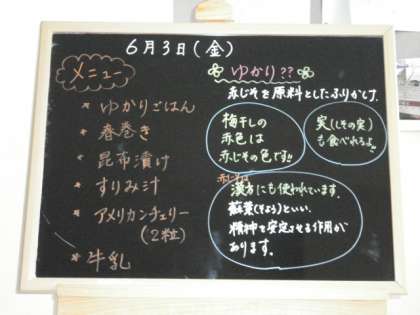 6月3日(金)
メニュー
* ゆかりごはん
* 春巻き
* 昆布漬け
* すりみ汁
* アメリカンチェリー
(2粒)
* 牛乳
ゆかり??
赤じそを原料としたふりかけ。
梅干しの
赤色は
赤じその色です!!
実(しその実)
も食べれるよ。
赤じそは
漢方にも使われています。
蘇葉(そよう)といい、
精神を安定させる作用が
あります。